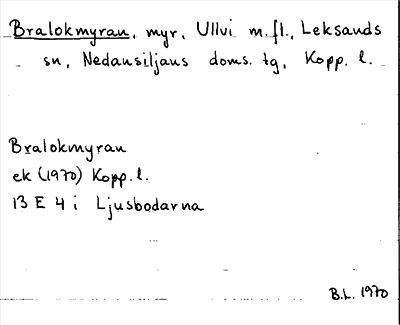 Bralokmyran, myr, Ullvi m.fl., Leksands
sn, Nedansiljans doms. tg, Kopp. l.
Bralokmyran
ek (1970) Kopp. l.
13 E 4 i Ljusbodarna
B.L. 1970